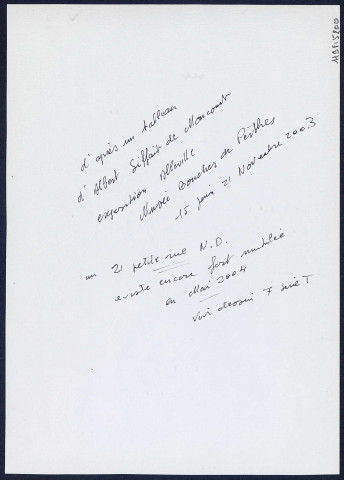 11BFi5200
d'après un tableau
d'Albert Siffait de Moncourt
exposition Abbeville
Musée Boucher de Perthes
15 juin 21 Novembre 2003
au 21 petite rue N.D.
existe encore fort mutilée
en Mai 2004
Voir dessin 7 série T